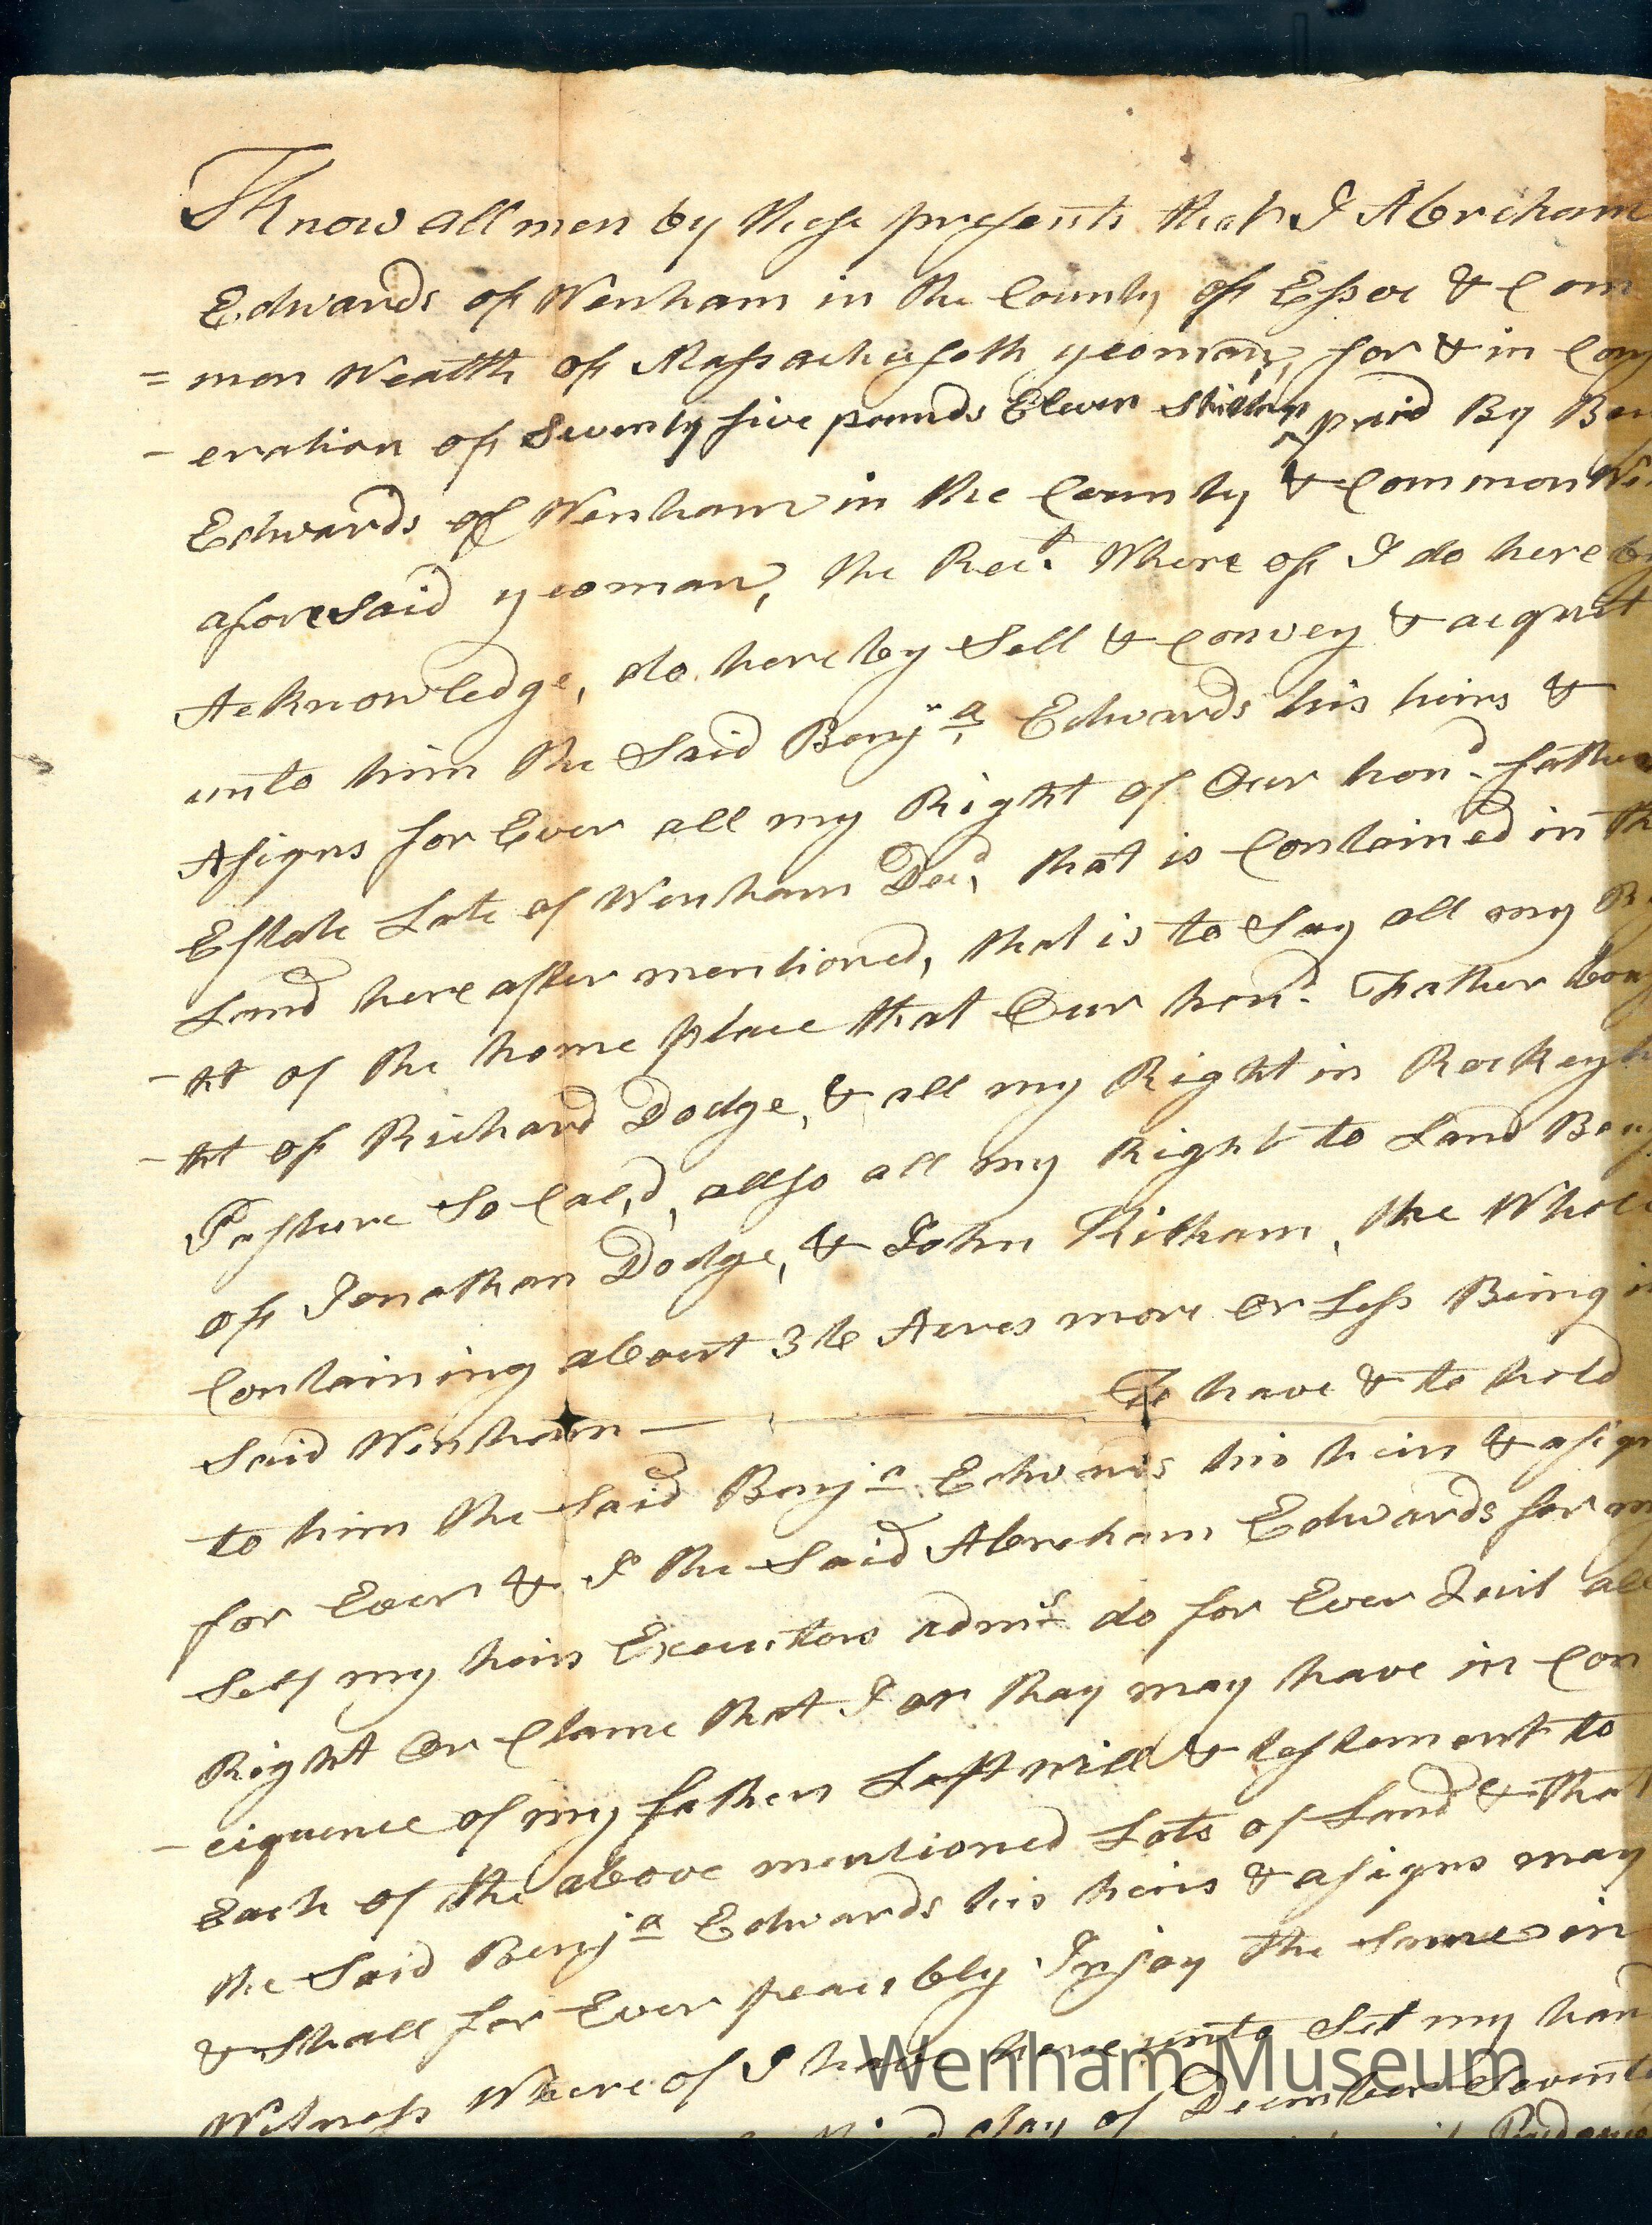 Know all men by these presents that I Abreham
Edwards of Wenham in the County of Essex & Com
= mon Wealth of Massachuseth yeoman, for & in Con
- eration of Seventy five pounds Eleven Shillings paid By Ben
Edwards of Wenham in the County & Common We
aforesaid yeoman, the Rect. Where of I do hereby
Acknowledge, do hereby Sell & Convey & acquit
unto him the Said Benja Edwards his heirs &
Asigns for Ever all my Right of Our hond. father
Estate Late of Wenham Decd, that is Contained in th
Land here after mentioned, that is to Say all my R
- ht of the home place that Our hond. Father boug
- ht of Richard Dodge, & all my Right in Rockey
Pasture So Cal,d, allso all my Right to Land Boug
of Jonathan Dodge, & John Kilham, the Whole
Containing about 36 Acres more or Less Being in
Said Wenham — To have & to hold
to him the Said Benja Edwards his heirs & asign
for Ever & I the Said Abreham Edwards for my
Self my heirs Executors admrs do for Ever Quit all
Right Or Clame that I or thay may have in Con
- ciquence of my fathers Last will & testement to
Each of the above mentioned Lots of Land & that
the Said Benja Edwards his heirs & asigns may
& Shall for Ever peacebly Injoy the Same in
Witness Where of I have here unto Set my hand
day of December
Wenham Museum